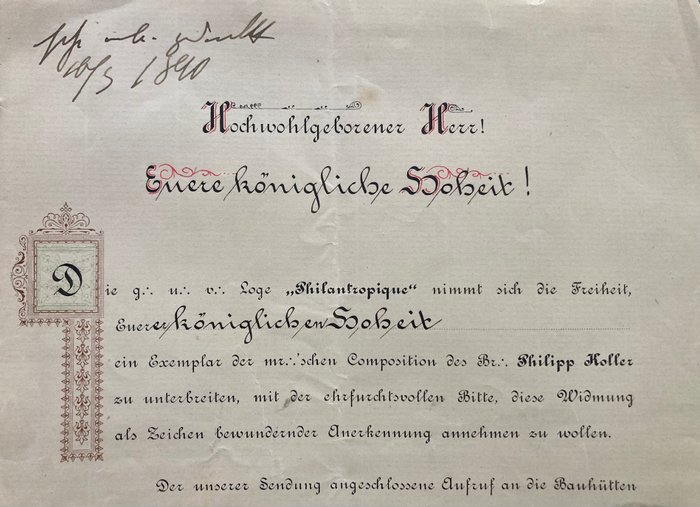 10/3 1890
Hochwohlgeborener Herr!
Euere königliche Hoheit!
Die g∴ u∴ v∴ Loge „Philantropique“ nimmt sich die Freiheit,
Euerer königlichen Hoheit
ein Exemplar der mr∴'schen Composition des Br∴ Philipp Koller
zu unterbreiten, mit der ehrfurchtsvollen Bitte, diese Widmung
als Zeichen bewundernder Anerkennung annehmen zu wollen.
Der unserer Sendung angeschlossene Aufruf an die Bauhütten